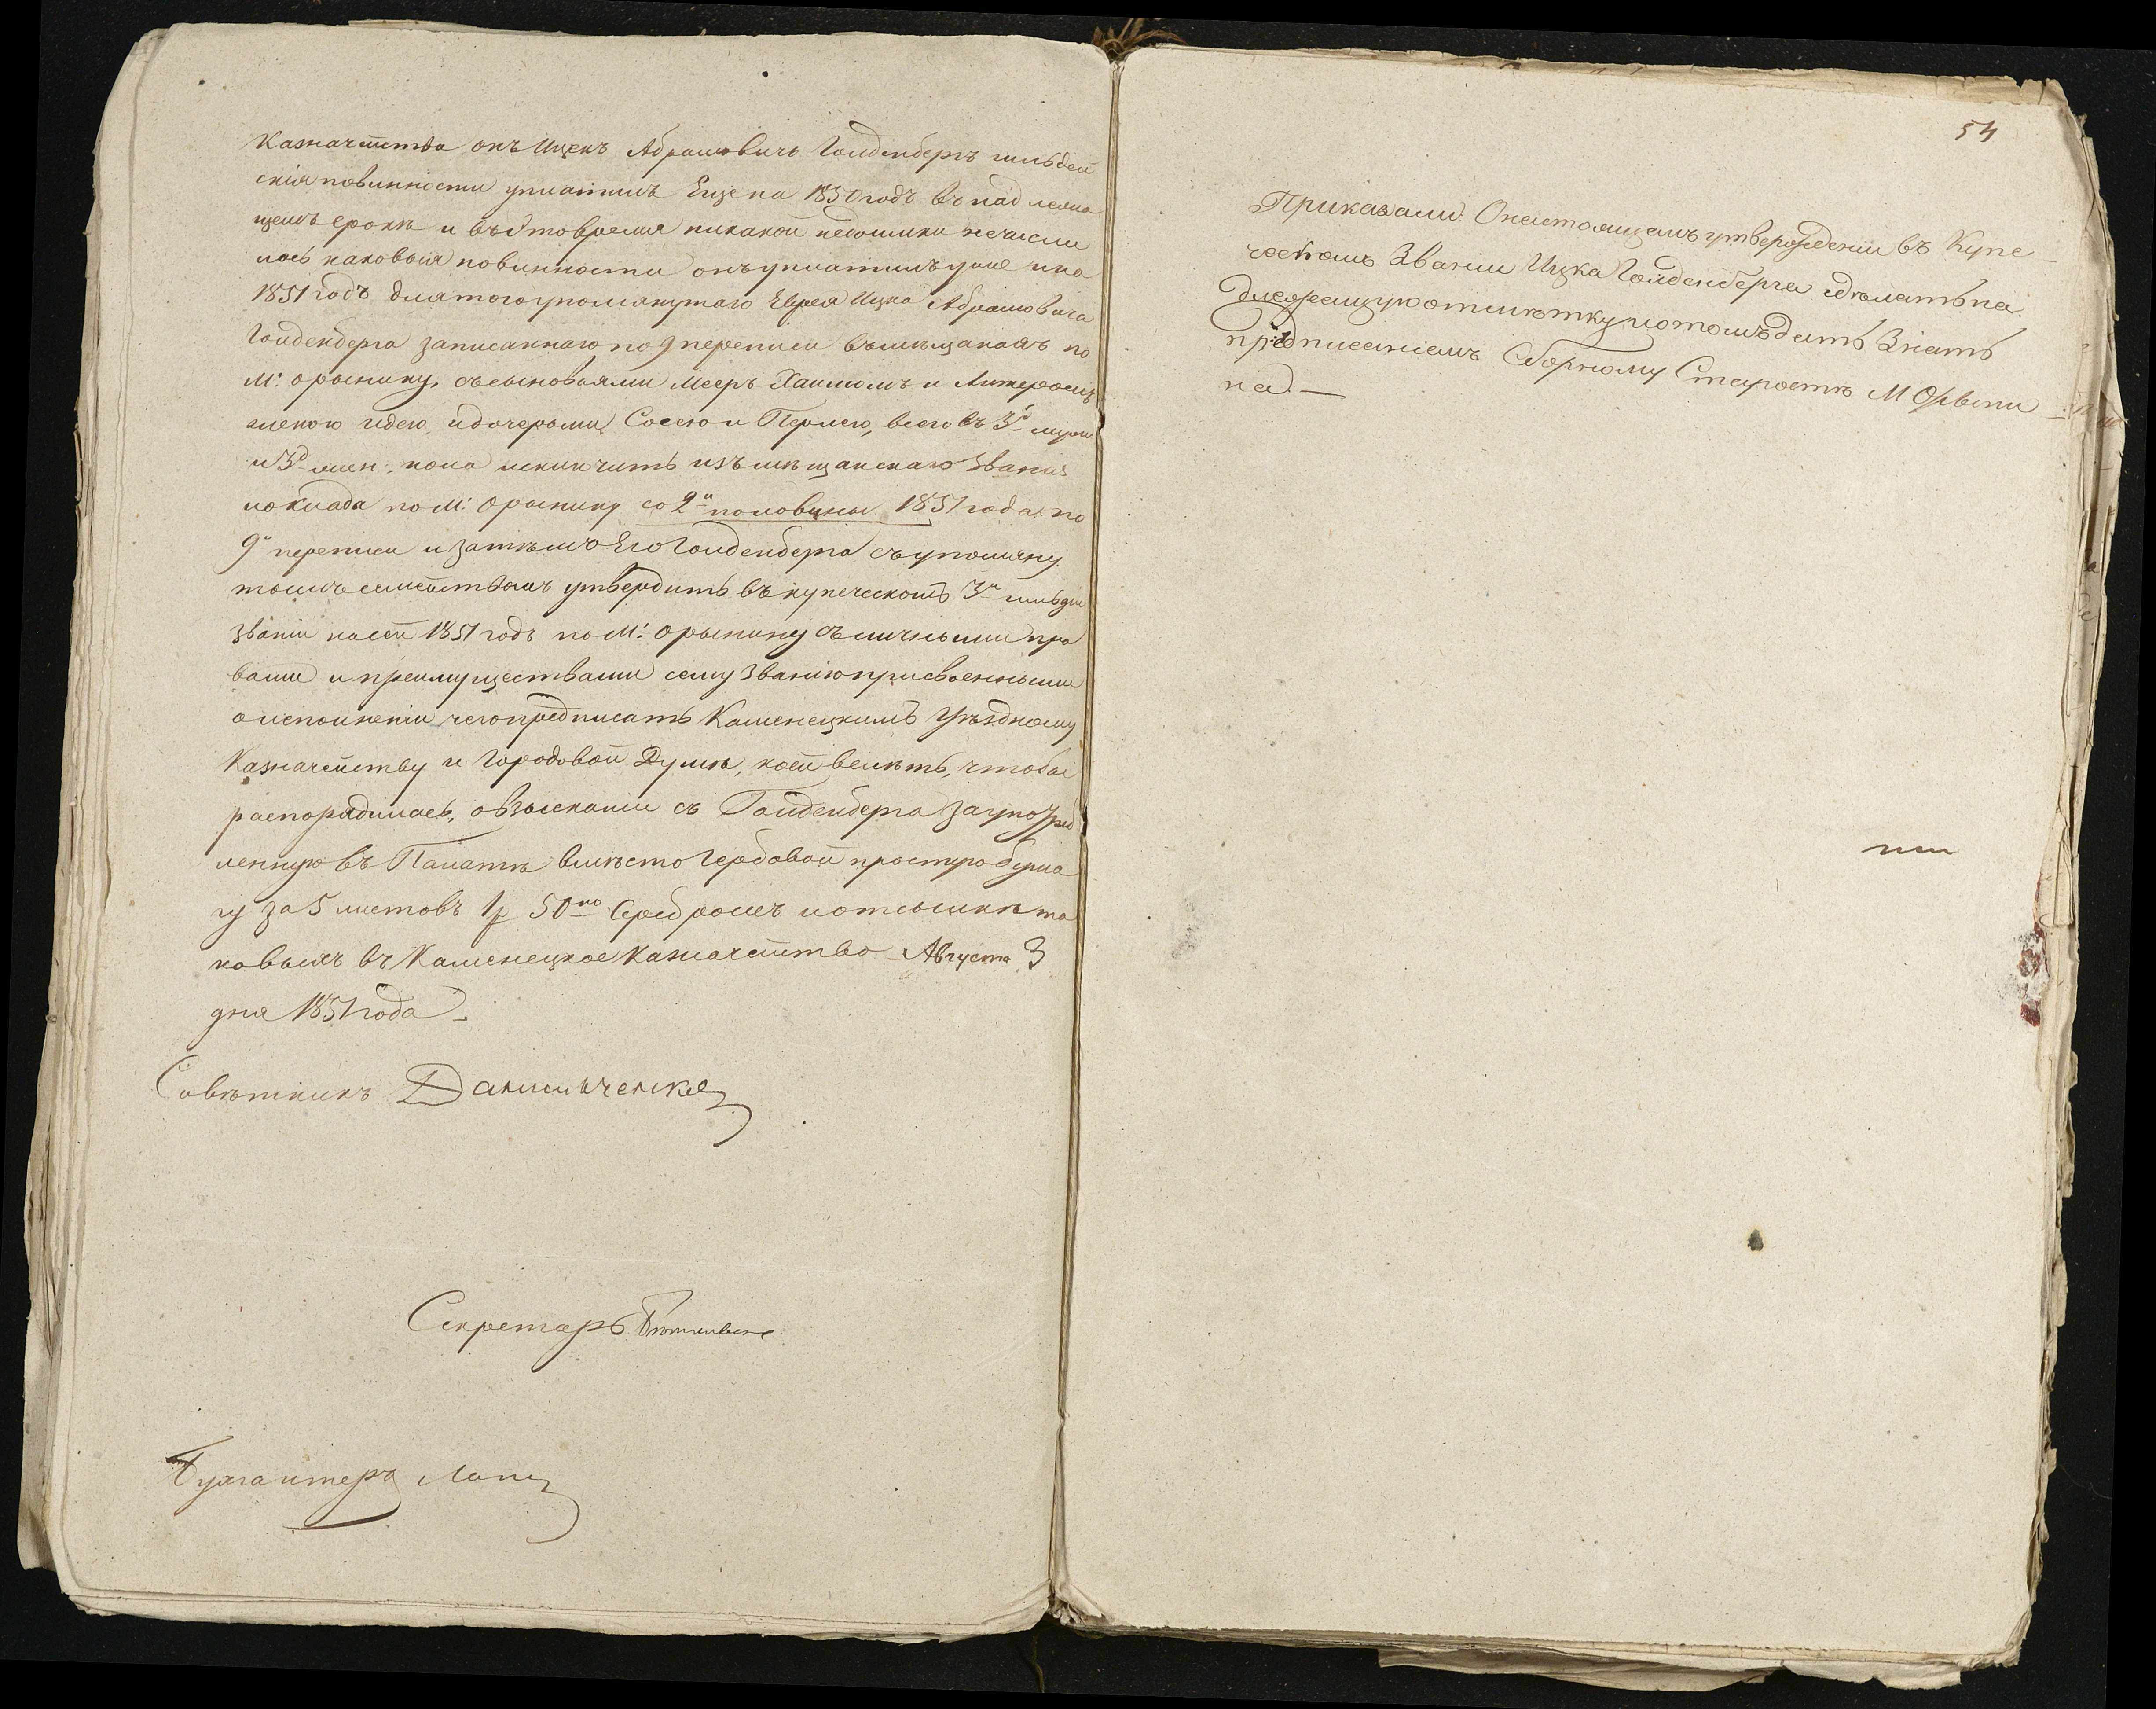 Казначейства онъ Ицекъ Абрамовичъ Голденбергъ гильдей
скія повинности уплатилъ Еще на 1850 годъ въ надлежа
щемъ срокѣ и въ это время никакой недоимки не числи
лось каковыя повинности онъ уплатилъ уже и на
1851 годъ для того упомянутаго Еврея Ицка Абрамовича
Голденберга записаннаго по 9 переписи въ мѣщанахъ по
М: Орынину, съ сыновьями Мееръ Хаимомъ и
женою Идею, и дочерьми Сосею и Перлею, всего въ 3й муж
и 3й жен: пола исключить изъ мѣщанскаго званія
и оклада по М: Орынину со 2й половины 1851 года по
9й переписи и затѣмъ Его Голденберга съ упомяну
тымъ семействомъ утвердить въ купеческомъ 3й гильдіи
званіи на сей 1851 годъ по М: Орынину съ личными пра
вами и преимуществами сему званію присвоенными
о исполненіи чего предписать Каменецкимъ Уѣздному
Казначейству и Городовой Думѣ, коей велѣть, чтобы
распорядилась, о взысканіи съ Голденберга за употреб
ленную въ Палатѣ вмѣсто Гербовой простую бума
гу за 5 листовъ 1 р 50 ко Серебромъ и отсылкѣ та
ковыхъ въ Каменецкое Казначейство Августа 3
дня 1851 года
Совѣтникъ Данильченко
Секретарь
Бухгалтеръ
54
Приказали: О настоящемъ утвержденіи въ Купе
ческомъ Званіи Ицка Голденберга сдѣлать на
длежащую отмѣтку и о томъ дать Знать
предписаніемъ Сборному Старостѣ М Орыни
на